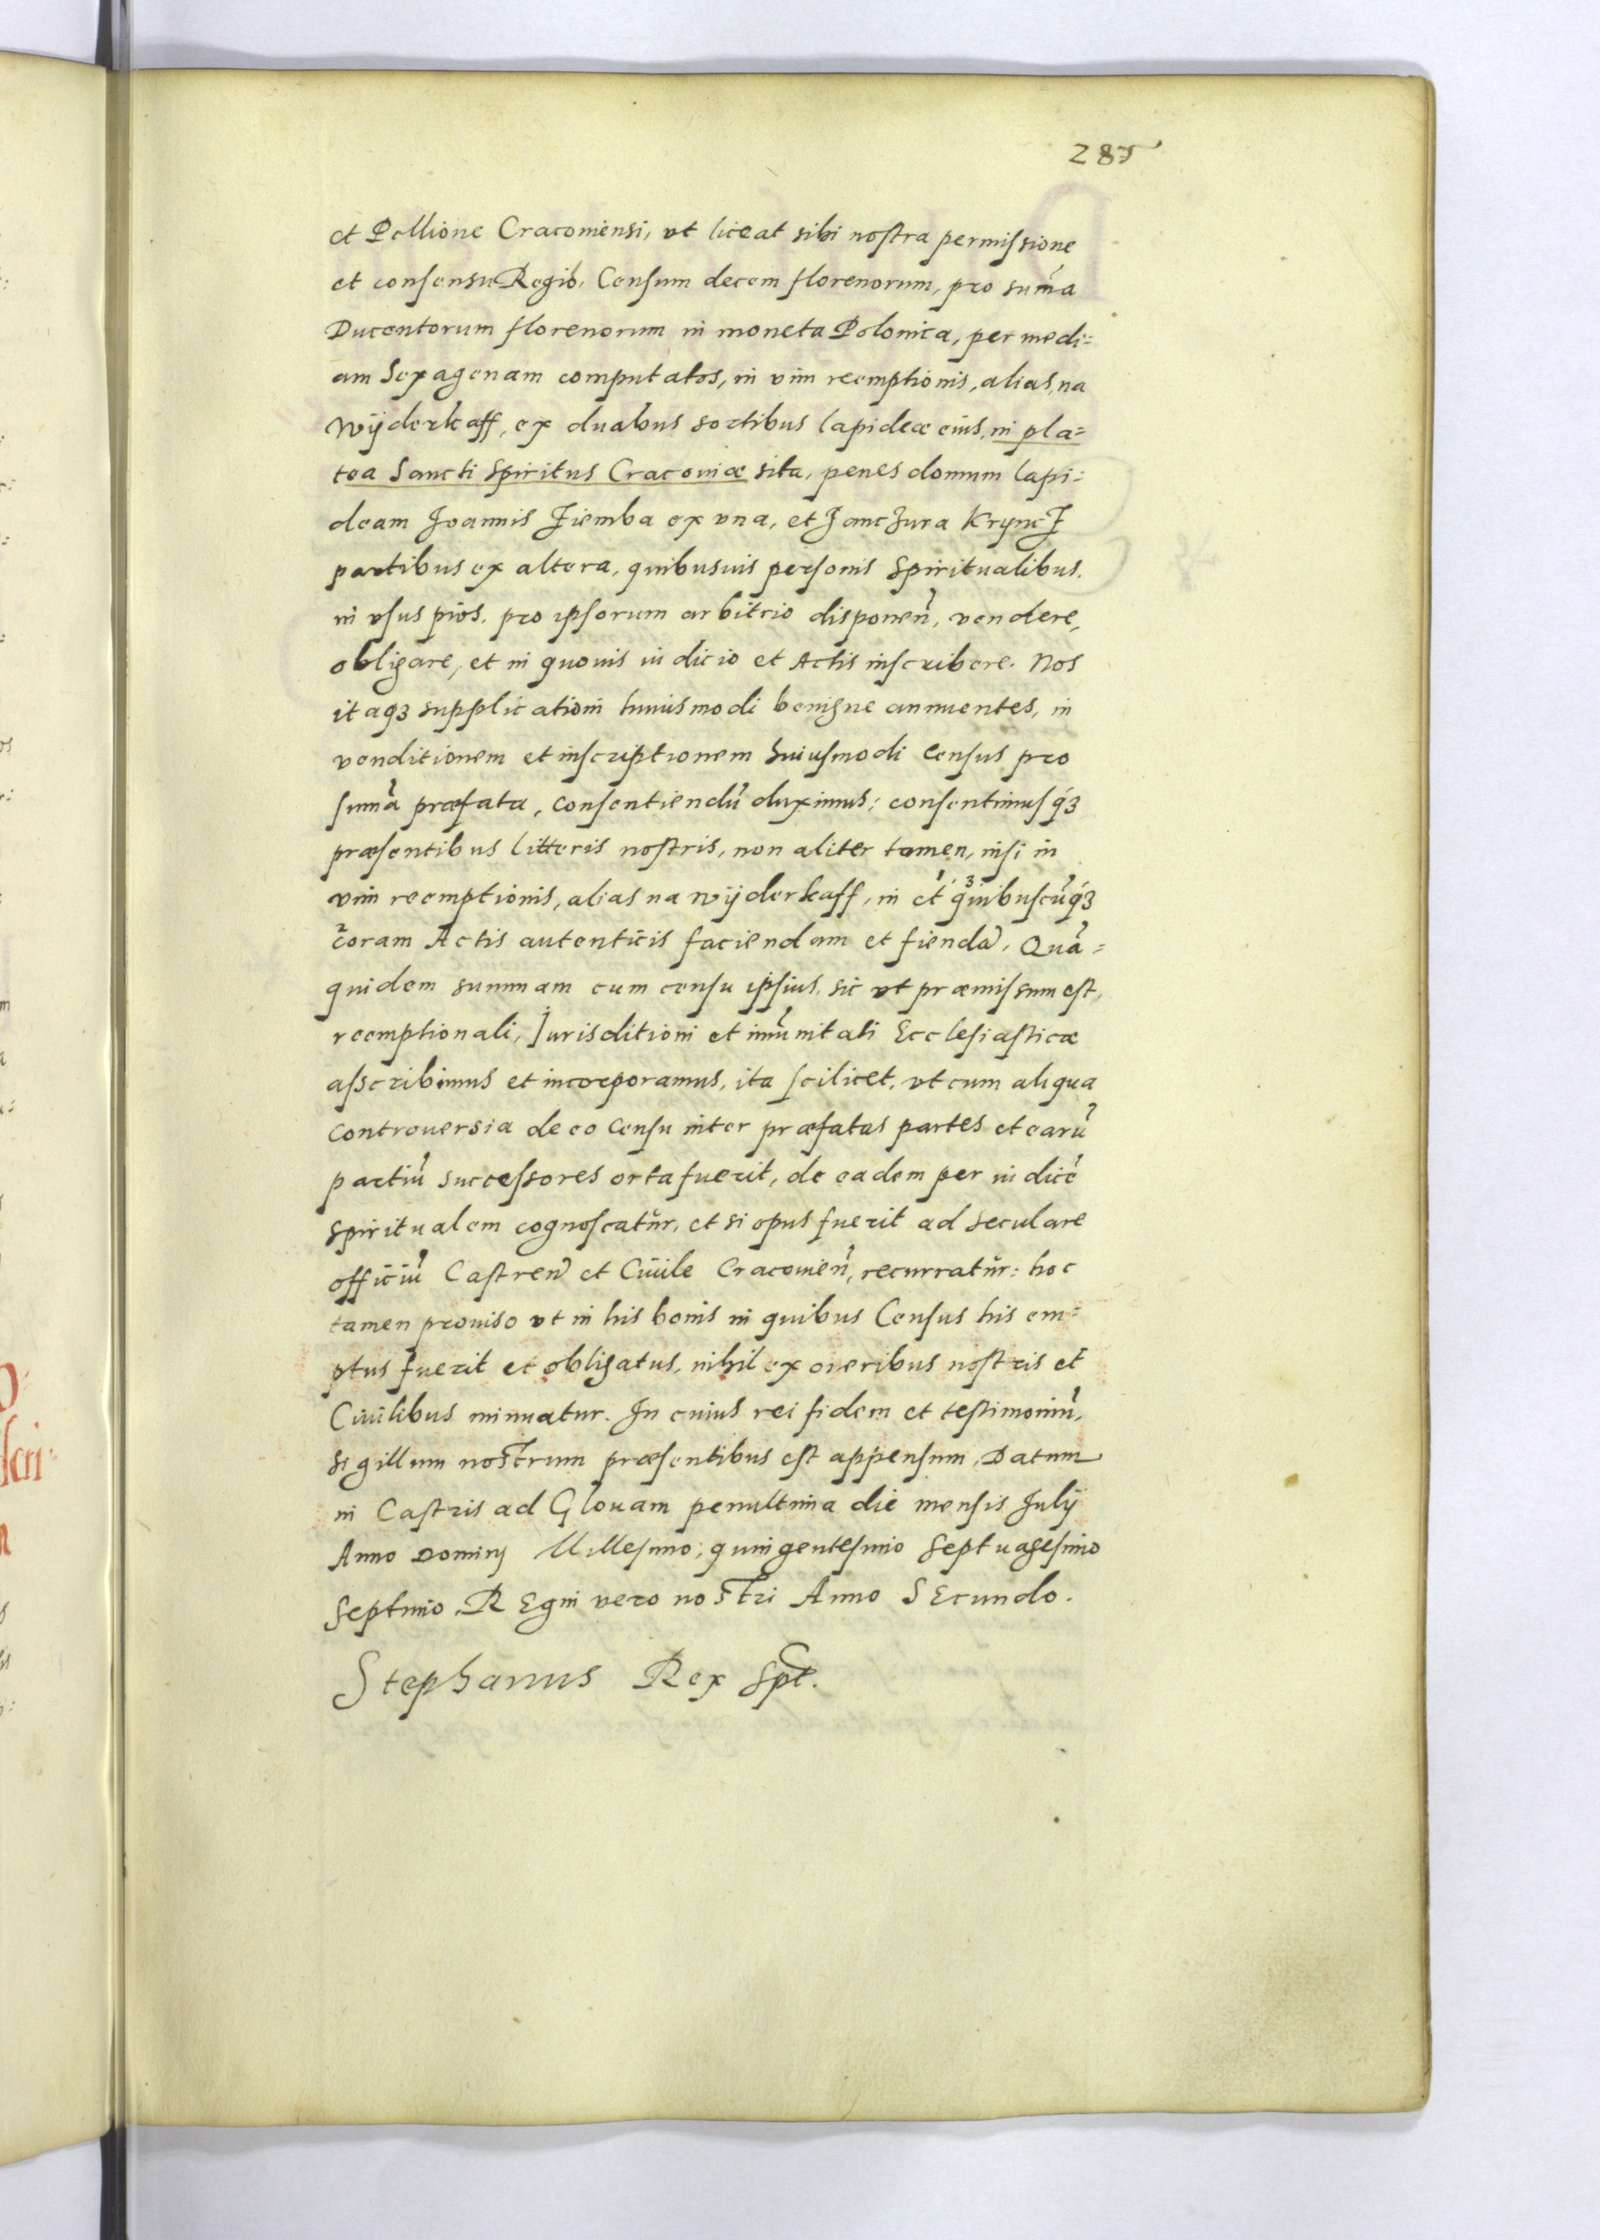 285
et Pellione Cracouiensi, vt liceat sibi nostra permissione
et consensu Regio, Censum decem florenorum, pro sum̃a
Ducentorum florenorum in moneta Polonica, per medi=
am Sexagenam computatos, in vim reemptionis, alias, na
Wÿderkaff, ex duabus sortibus lapideæ eius, in pla=
tea Sancti Spiritus Cracouiæ sita, penes domum lapi=
deam Joannis Ziemba ex vna, et Kryncz
partibus ex altera, quibusuis personis Spiritualibus.
in vsus pios. pro ipsorum arbitrio disponeñ, vendere,
obligare, et in quouis iudicio et Actis inscribere. Nos
itaqꝫ supplicationi huiusmodi benigne annuentes, in
venditionem et inscriptionem huiusmodi census pro
sum̃a præfata, consentiendũ duximus; consentimusqꝫ
præsentibus litteris nostris, non aliter tamen, nisi in
vim reemptionis, alias na wÿderkaff, in et quibuscũqꝫ
coram Actis autenticis faciendam et fiendã. Quã=
quidem summam cum censu ipsius, sic vt præmissum est,
reemptionali, Jurisditioni et im̃unitati Ecclesiasticæ
asscribimus et incorporamus, ita scilicet, vt cum aliqua
controuersia de eo Censu inter præfatas partes et earũ
partiũ successores orta fuerit, de eadem per iudicẽ
spiritualem cognoscatur, et si opus fuerit ad seculare
officiũ Castreñ et Ciuile Cracouieñ, recurratur: hoc
tamen prouiso vt in his bonis in quibus Census his em=
ptus fuerit et obligatus, nihil ex oneribus nostris et
Ciuilibus minuatur. In cuius rei fidem et testimoniũ,
sigillum nostrum præsentibus est appensum, Datum
in Castris ad Glouam penultima die mensis Julÿ
Anno Domini Millesimo; quingentesimo Septuagesimo
septimo, REgni vero nostri Anno SEcundo.
Stephanus Rex sp̃t.